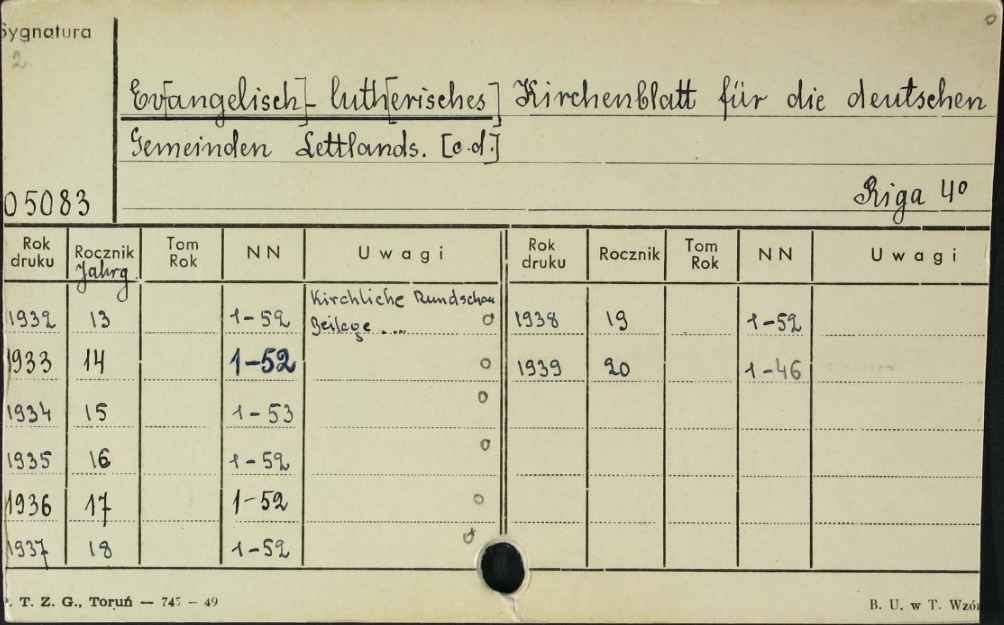 Sygnatura
2
Ev[angelisch]- luth[erisches] Kirchenblatt für die deutschen
Gemeinden Lettlands. [c.d.]
Riga 4°
05083
Rok druku Rocznik Jahrg. Tom Rok NN Uwagi Rok druku Rocznik Tom Rok NN Uwagi
1932 13 1-52 Kirchliche Rundschau Beilage.... 1938 19 1-52
1933 14 1-52 1939 20 1-46
1934 15 1-53
1935 16 1-52
1936 17 1-52
1937 18 1-52
T. Z. G., Toruń — 745 - 49 B. U. w T.